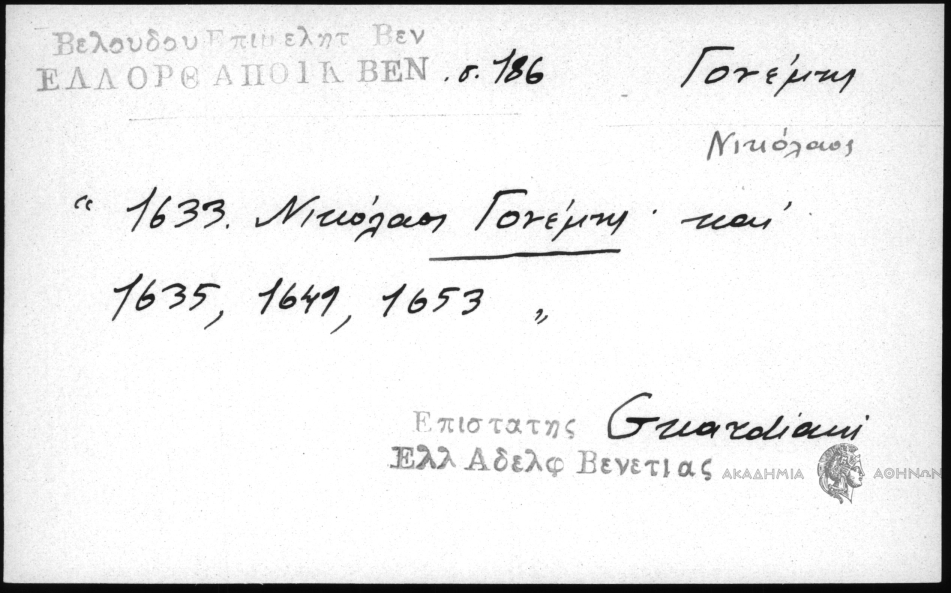 Βελουδου Επιμελητ Βεν
ΕΛΛ ΟΡΘ ΑΠΟΙΚ ΒΕΝ . σ. 186 Γονέμης
Νικόλαος
“ 1633. Νικόλαος Γονέμης · καί
1635, 1649, 1653 „
Επιστατης Guardiani
Ελλ Αδελφ Βενετιας
ΑΚΑΔΗΜΙΑ ΑΘΗΝΩΝ